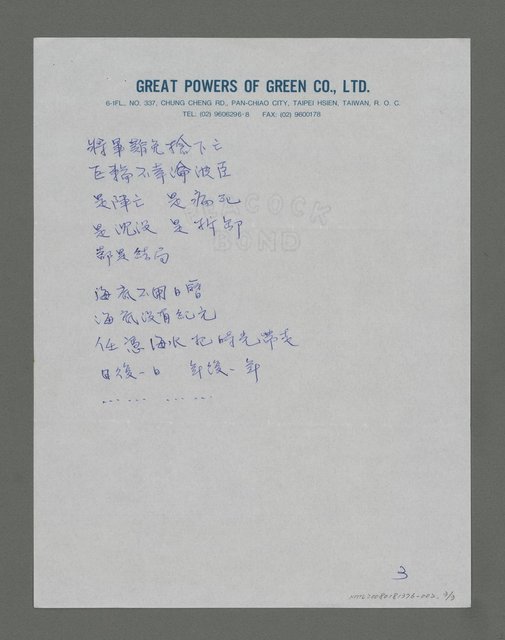 GREAT POWERS OF GREEN CO., LTD.
6-1FL., NO. 337, CHUNG CHENG RD., PAN-CHIAO CITY, TAIPEI HSIEN, TAIWAN, R. O. C.
TEL: (02) 9606296-8 FAX: (02) 9600178
將軍難免槍下亡
巨輪不幸淪波臣
是陣亡 是病死
是沉沒 是拆卸
都是結局
海底不用日曆
海底沒有紀元
任憑海水把時光帶走
日後一日 年後一年
…… ……
COCK
BOND
3
3/3